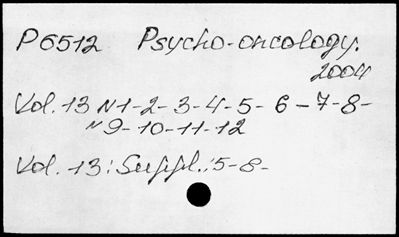 P6512 Psycho-oncology.
2004
Vol. 13 N1-2-3-4-5-6-7-8-
N9-10-11-12
Vol. 13: Suppl.: 5-8-